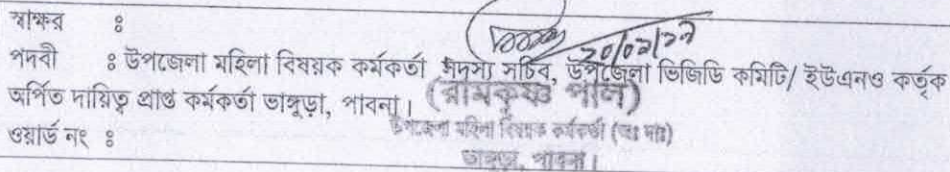 স্বাক্ষর ঃ
পদবী ঃ উপজেলা মহিলা বিষয়ক কর্মকর্তা সদস্য সচিব, উপজেলা ভিজিডি কমিটি/ ইউএনও কর্তৃক
অর্পিত দায়িত্ব প্রাপ্ত কর্মকর্তা ভাঙ্গুড়া, পাবনা।
(রামকৃষ্ণ পাল)
ওয়ার্ড নং ঃ
উপজেলা মহিলা বিষয়ক কর্মকর্তা (অঃ দাঃ)
ভাঙ্গুড়া, পাবনা।